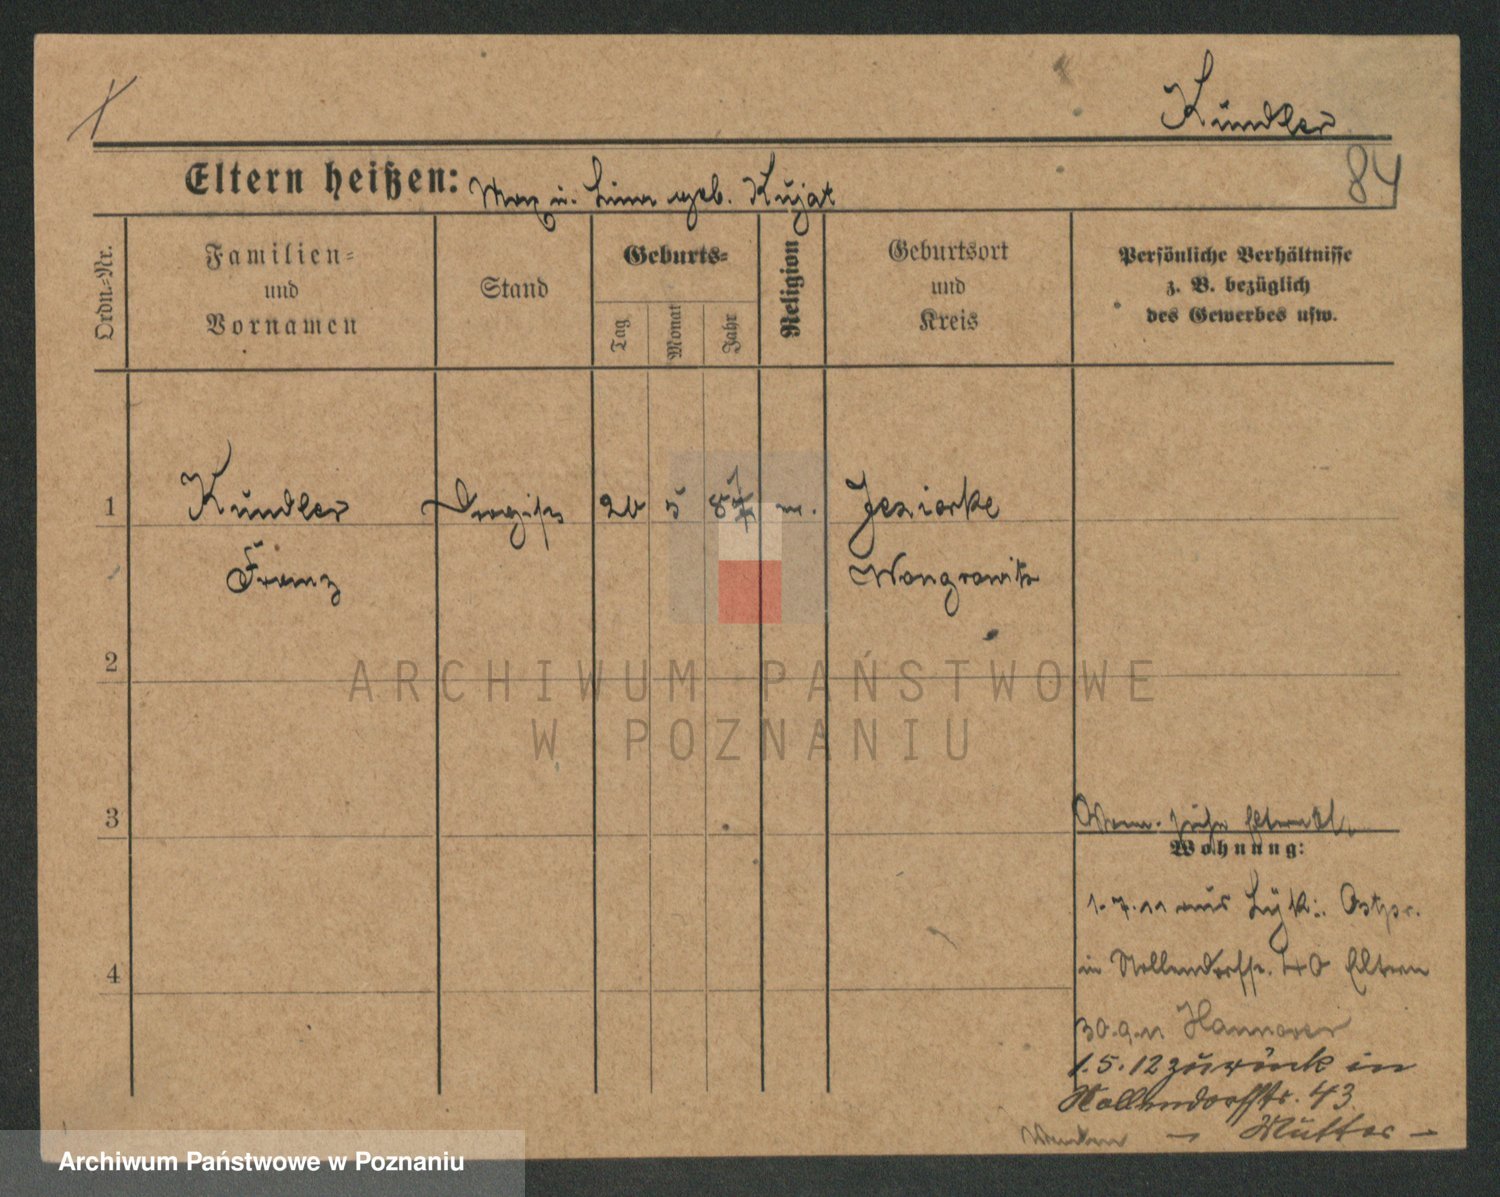 Kundler
84
Eltern heißen: Max u. Lina geb. Kujat
Ordn.=Nr.
Familien=
und
Vornamen
Stand
Geburts=
Tag
Monat
Jahr
Religion
Geburtsort
und
Kreis
Persönliche Verhältnisse
z. B. bezüglich
des Gewerbes usw.
1
Kundler
Franz
26 5 87
Jeziorke
Wongrowitz
2
3
4
Wohnung:
1.7.11 aus Lyk. Ostpr.
in Nollendorfstr. 40 Eltern
30.9.11 Hannover
1.5.12 zurück in
Nollendorffstr. 43
– Mutter –
ARCHIWUM PAŃSTWOWE
W POZNANIU
Archiwum Państwowe w Poznaniu